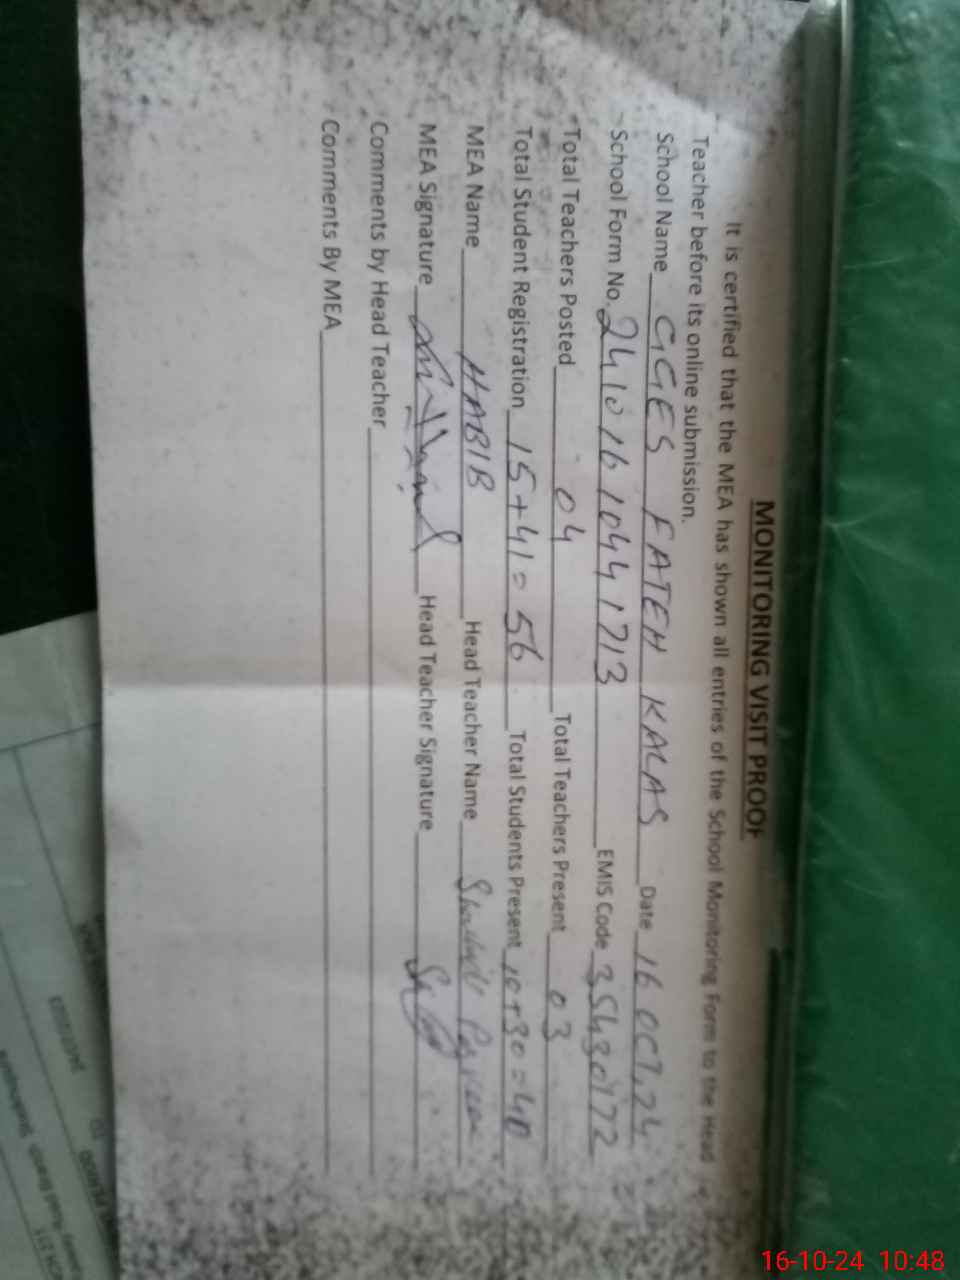 MONITORING VISIT PROOF
It is certified that the MEA has shown all entries of the School Monitoring Form to the Head
Teacher before its online submission.
School Name GGES FATEH KALAS Date 16 OCT, 24
School Form No. 2410161044 1713 EMIS Code 35430172
Total Teachers Posted 04 Total Teachers Present 03
Total Student Registration 15+41=56 Total Students Present 10+30=40
MEA Name HABIB Head Teacher Name
MEA Signature Head Teacher Signature
Comments by Head Teacher
Comments By MEA
16-10-24 10:48